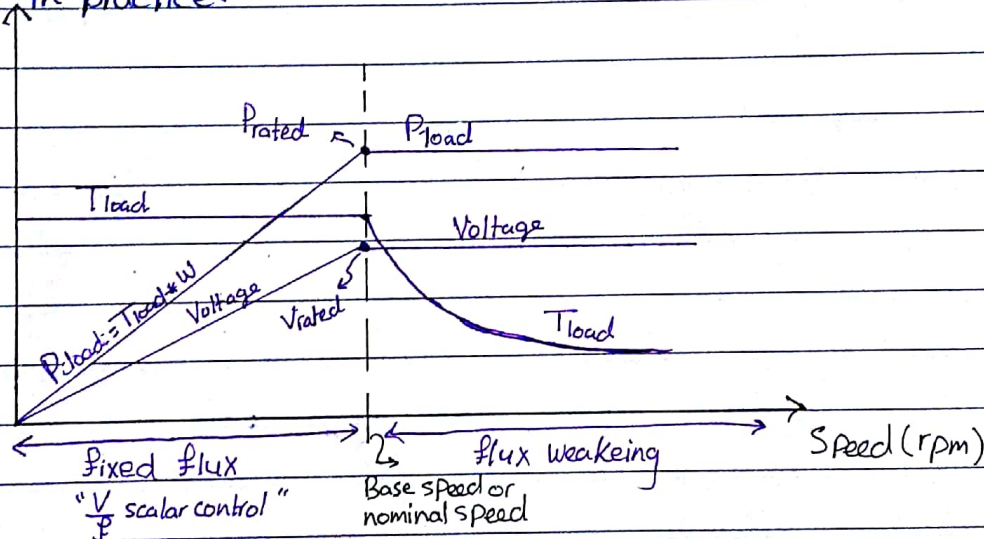 in practice.
Prated
Pload
Tload
Voltage
Pload=Tload*W
Voltage
Vrated
Tload
Speed (rpm)
fixed flux
flux weakeing
"V/f scalar control"
Base speed or
nominal speed